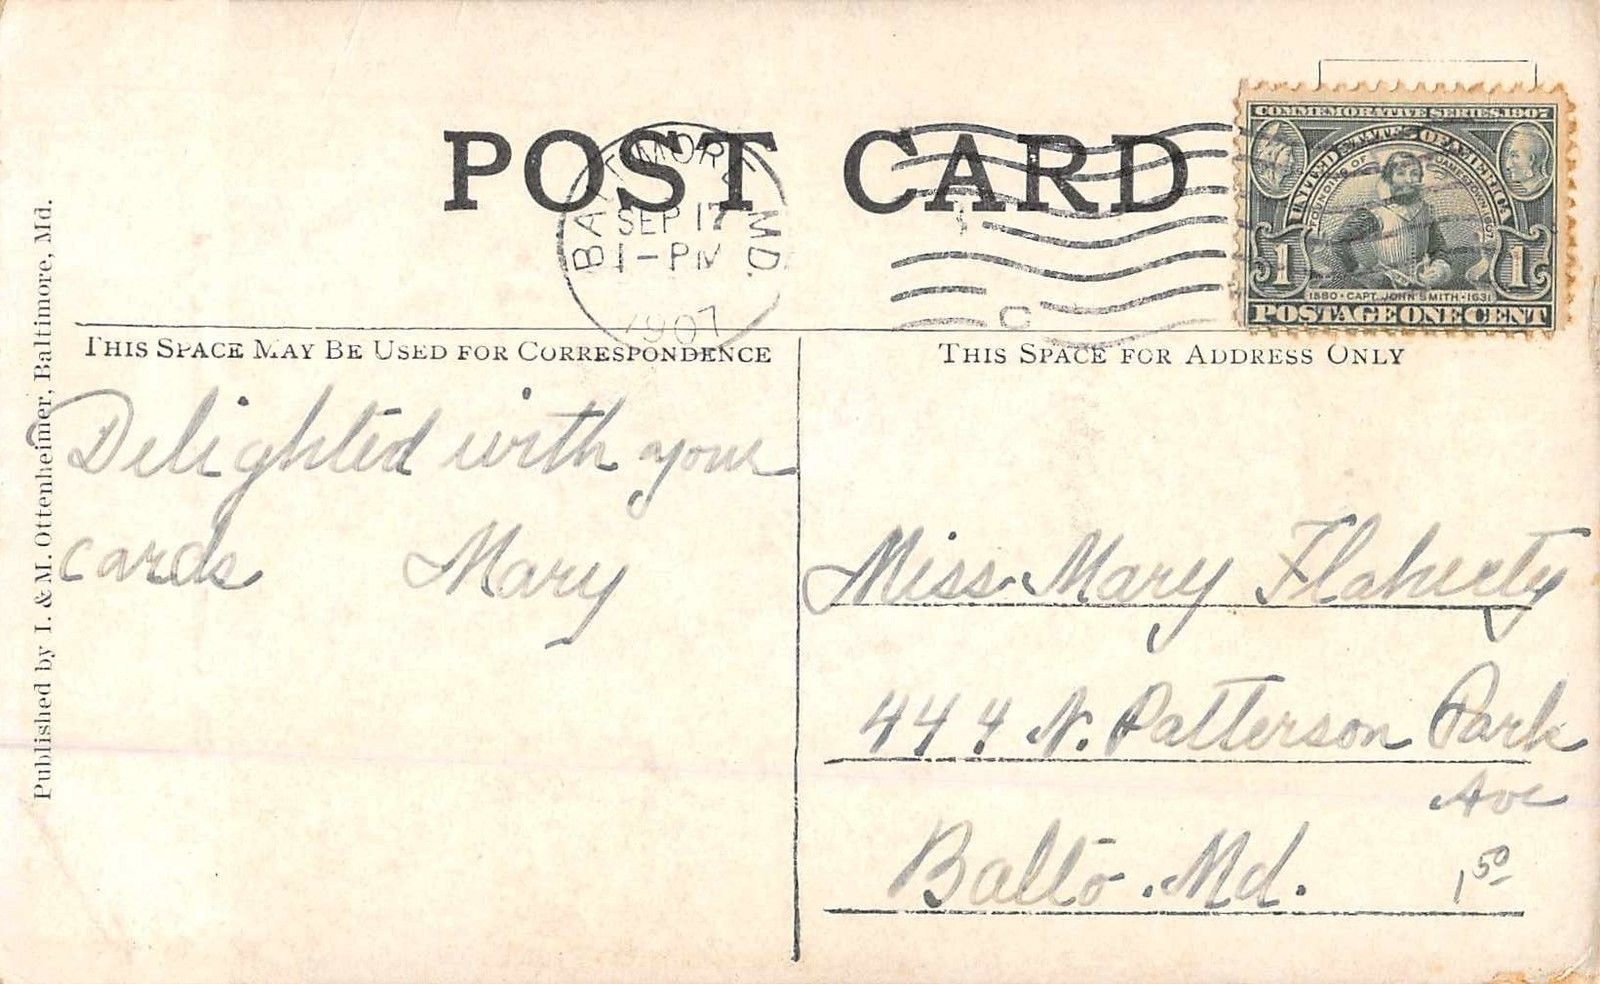 POST CARD
BALTIMORE, MD.
SEP 17
1-PM
1907
COMMEMORATIVE SERIES 1907
UNITED STATES OF AMERICA
FOUNDING OF JAMESTOWN 1607
1 1
1580 · CAPT. JOHN SMITH · 1631
POSTAGE ONE CENT
THIS SPACE MAY BE USED FOR CORRESPONDENCE
THIS SPACE FOR ADDRESS ONLY
Published by I. & M. Ottenheimer, Baltimore, Md.
Delighted with your
cards Mary
Miss Mary Flaherty
444 N. Patterson Park
Ave
Balto. Md.
1 50